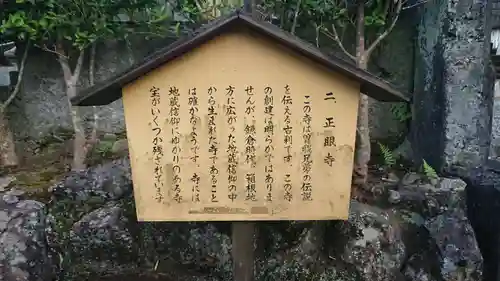 二　正眼寺
この寺は曽我兄弟の伝説
を伝える古刹です。この寺
の創建は明らかではありま
せんが、鎌倉時代、箱根地
方に広がった地蔵信仰の中
から生まれた寺であること
は確かなようです。寺には
地蔵信仰にゆかりのある寺
宝がいくつか残されています。